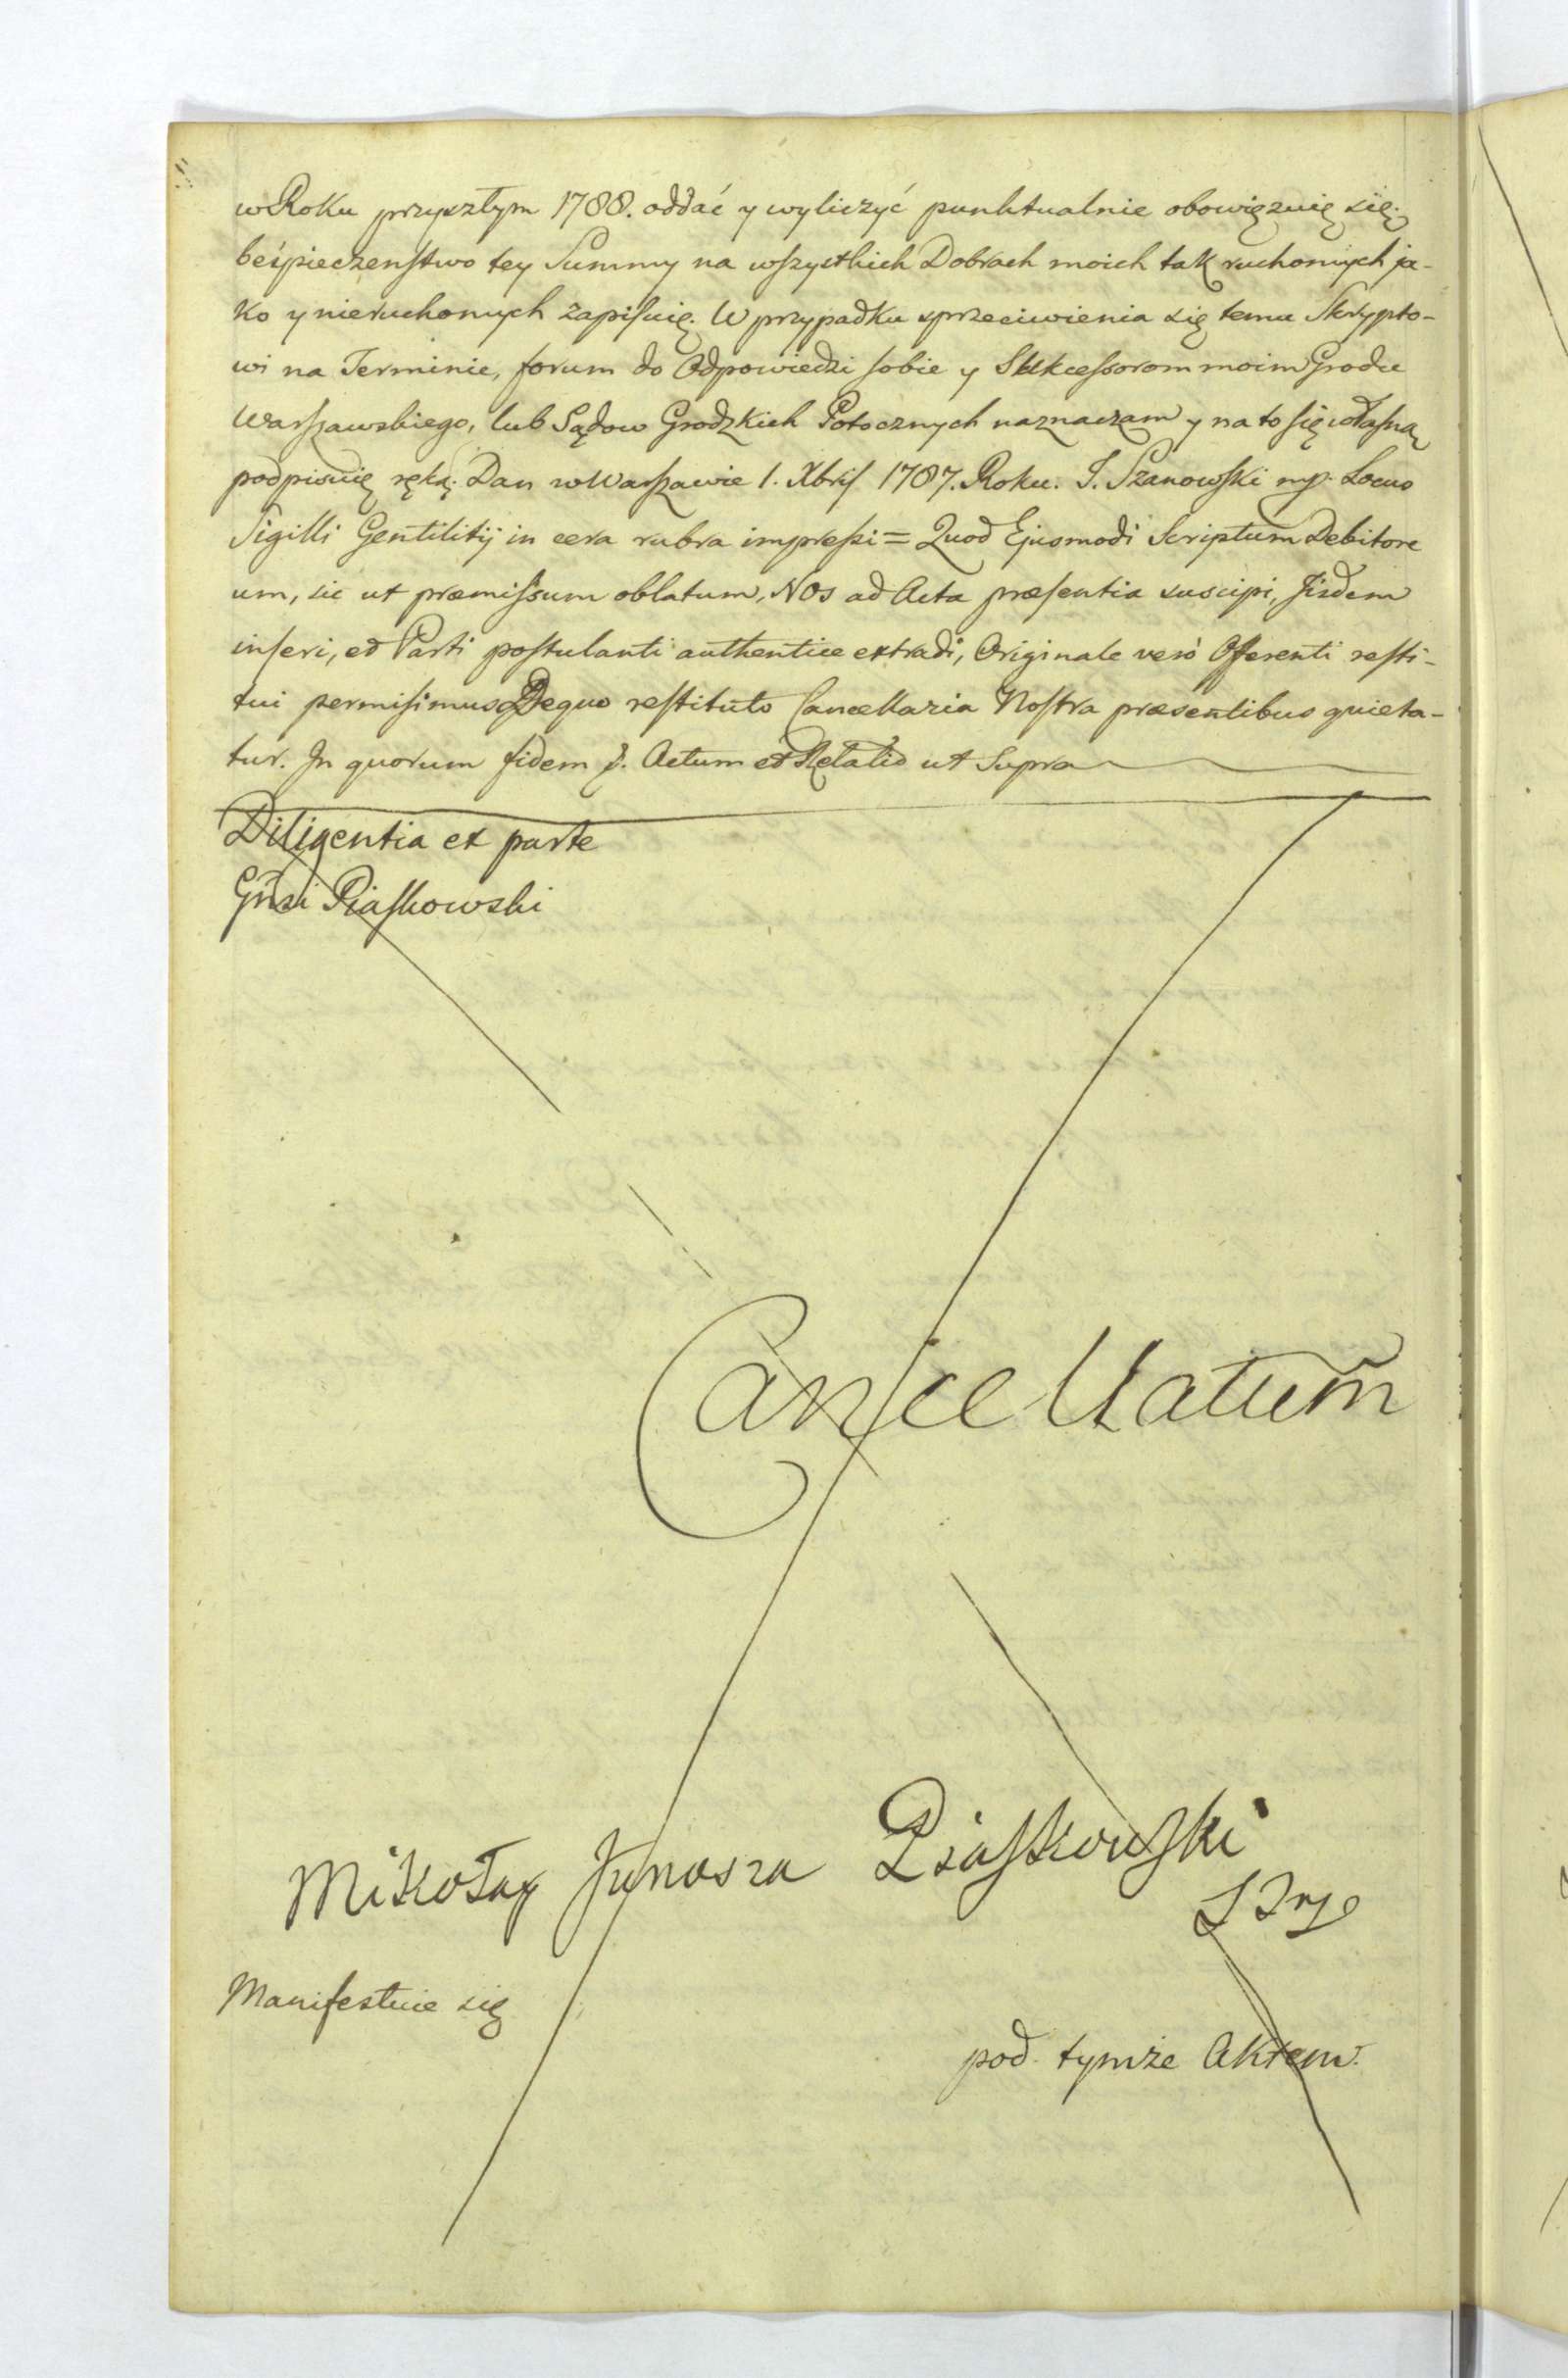 w Roku przyszłym 1788. oddać y wyliczyć punktualnie obowięzuię się.
beśpieczenſtwo tey Summy na wſzystkich Dobrach moich tak ruchomych ja-
ko y nieruchomych zapiſuię. W przypadku sprzeciwienia się temu Skrypto-
wi na Terminie, forum do Odpowiedzi ſobie y Sukceſsorom moim Grodu
Warſzawskiego, lub Sądow Grodzkich Potocznych naznaczam y na to ſię właſną
podpisuię ręką. Dan w Warſzawie 1. Xbris 1787. Roku. J. Szanowſki mp. Locus
Sigilli Gentilitij in cera rubra impreſsi = Quod Ejusmodi Scriptum Debitore
um, sic ut præmiſsum oblatum, Nos ad Acta præſentia suscipi, Jisdem
inſeri, ed Parti poſtulanti authentice extradi, Originale verò Offerenti reſti-
tui permiſimus De quo reſtituto Cancellaria Noſtra præsentibus quieta-
tur. In quorum fidem &. Actum et Relatio ut Supra
Diligentia ex parte
Gñsi Piaſkowski
Cancellatum̃
Mikołay Junosza Piaſkowſki
Manifestuie się
pod tymże Aktem.